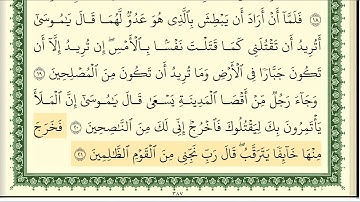 ١٨ فَلَمَّآ أَنْ أَرَادَ أَن يَبْطِشَ بِٱلَّذِى هُوَ عَدُوٌّ لَّهُمَا قَالَ يَـٰمُوسَىٰٓ
أَتُرِيدُ أَن تَقْتُلَنِى كَمَا قَتَلْتَ نَفْسًۢا بِٱلْأَمْسِ ۖ إِن تُرِيدُ إِلَّآ أَن
تَكُونَ جَبَّارًا فِى ٱلْأَرْضِ وَمَا تُرِيدُ أَن تَكُونَ مِنَ ٱلْمُصْلِحِينَ ١٩
وَجَآءَ رَجُلٌ مِّنْ أَقْصَا ٱلْمَدِينَةِ يَسْعَىٰ قَالَ يَـٰمُوسَىٰٓ إِنَّ ٱلْمَلَأَ
يَأْتَمِرُونَ بِكَ لِيَقْتُلُوكَ فَٱخْرُجْ إِنِّى لَكَ مِنَ ٱلنَّـٰصِحِينَ ٢٠ فَخَرَجَ
مِنْهَا خَآئِفًا يَتَرَقَّبُ ۖ قَالَ رَبِّ نَجِّنِى مِنَ ٱلْقَوْمِ ٱلظَّـٰلِمِينَ ٢١
٣٨٧